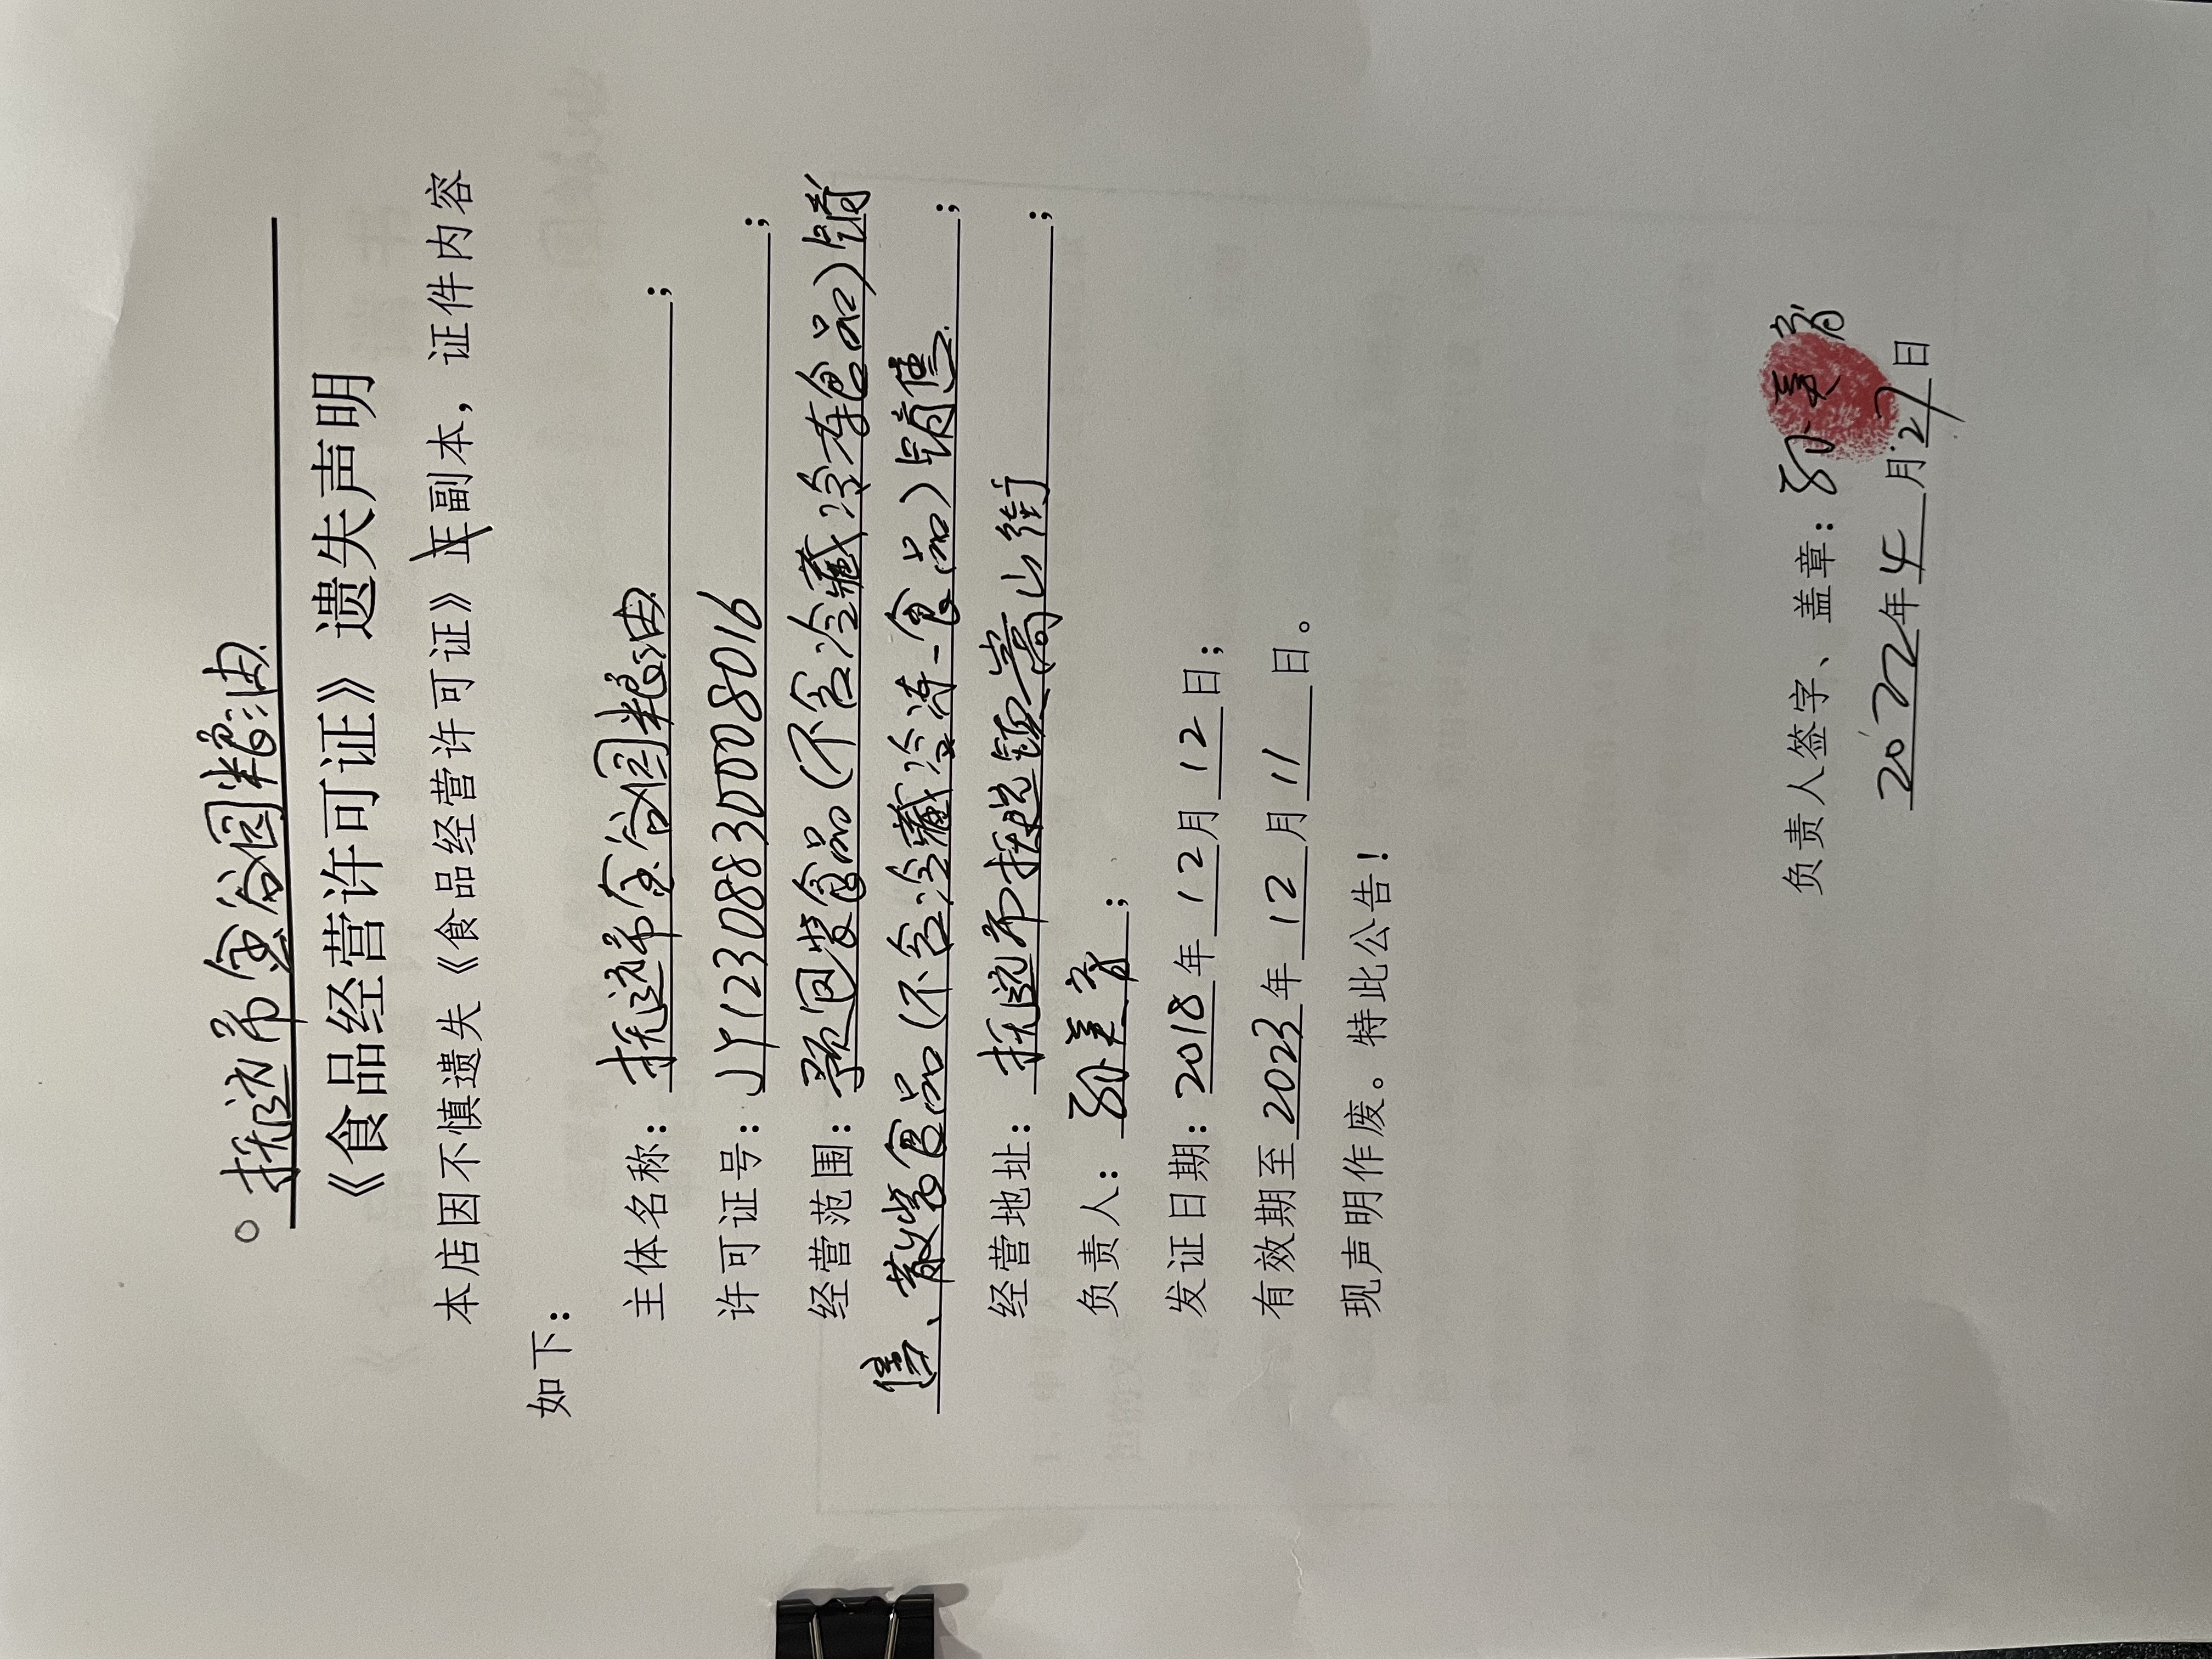 抚远市金谷园粮油
《食品经营许可证》遗失声明
本店因不慎遗失《食品经营许可证》正副本，证件内容
如下：
主体名称：抚远市金谷园粮油；
许可证号：JY12308830008016；
经营范围：预包装食品(不含冷藏冷冻食品)销
售、散装食品(不含冷藏冷冻食品)销售；
经营地址：抚远市抚远镇嵩山街；
负责人：孙美育；
发证日期：2018年12月12日；
有效期至2023年12月11日。
现声明作废。特此公告！
负责人签字、盖章：孙美育
2022年4月27日